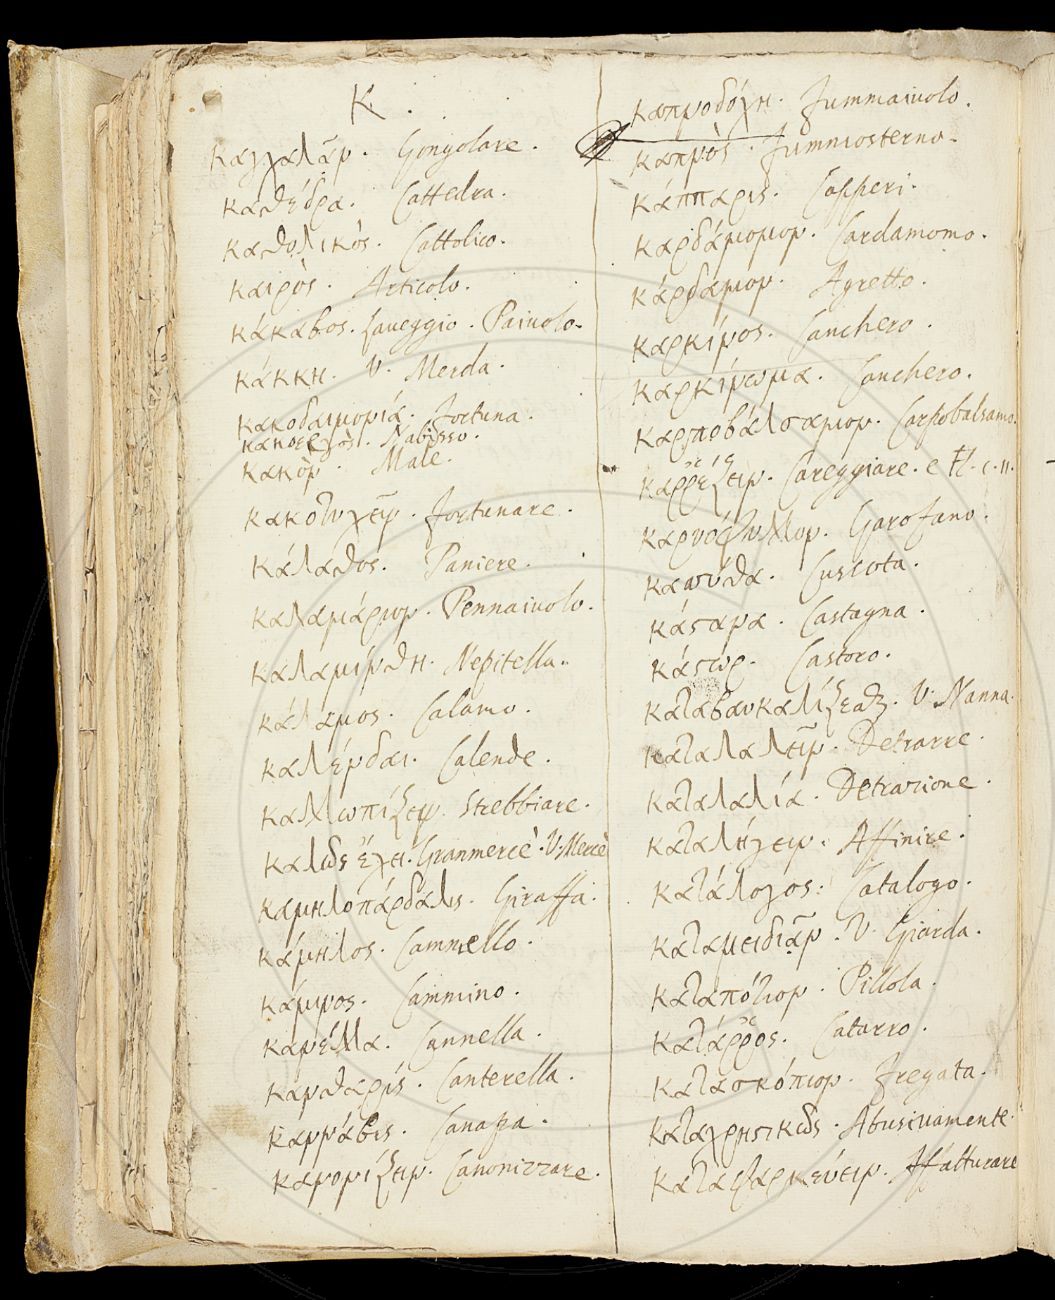 K.
καγχαλᾶν. Gongolare.
καθέδρα. Cattedra.
καθολικὸς. Cattolico.
καιρὸς. Articolo.
κάκαβος. Laveggio. Paiuolo.
κάκκη. V. Merda.
κακοδαιμονία. Fortuna.
κακοεργὸς. Nabisso.
κακὸν. Male.
κακοτυχεῖν. Fortunare.
κάλαθος. Paniere.
καλαμάριον. Pennaiuolo.
καλαμίνθη. Nepitella.
κάλαμος. Calamo.
καλένδαι. Calende.
καλλωπίζειν. Strebbiare.
καλῶς ἔχει. Granmercè. V. Mercè
καμηλοπάρδαλις. Giraffa.
κάμηλος. Cammello.
κάμινος. Cammino.
κανέλλα. Cannella.
κανθαρίς. Canterella.
κάνναβις. Canapa.
κανονίζειν. Canonizzare.
καπνοδόχη. Fummaiuolo.
καπνὸς. Fummosterno.
κάππαρις. Capperi.
καρδάμωμον. Cardamomo.
κάρδαμον. Agretto.
καρκίνος. Canchero.
καρκίνωμα. Canchero.
καρποβάλσαμον. Carpobalsamo.
καῤῥέζειν. Careggiare. e
καρυόφυλλον. Garofano.
κασύθα. Cuscuta.
κάστανα. Castagna.
κάστωρ. Castoro.
καταβαυκαλίζεσθαι. V. Nanna.
καταλαλεῖν. Detrarre.
καταλαλία. Detrazione.
καταλήγειν. Affinire.
κατάλογος. Catalogo.
καταμειδιᾶν. V. Giarda.
καταπότιον. Pillola.
κατάῤῥος. Catarro.
κατασκόπιον. Fregata.
καταχρηστικῶς. Abusivamente.
καταφαρμεύειν. Affatturare